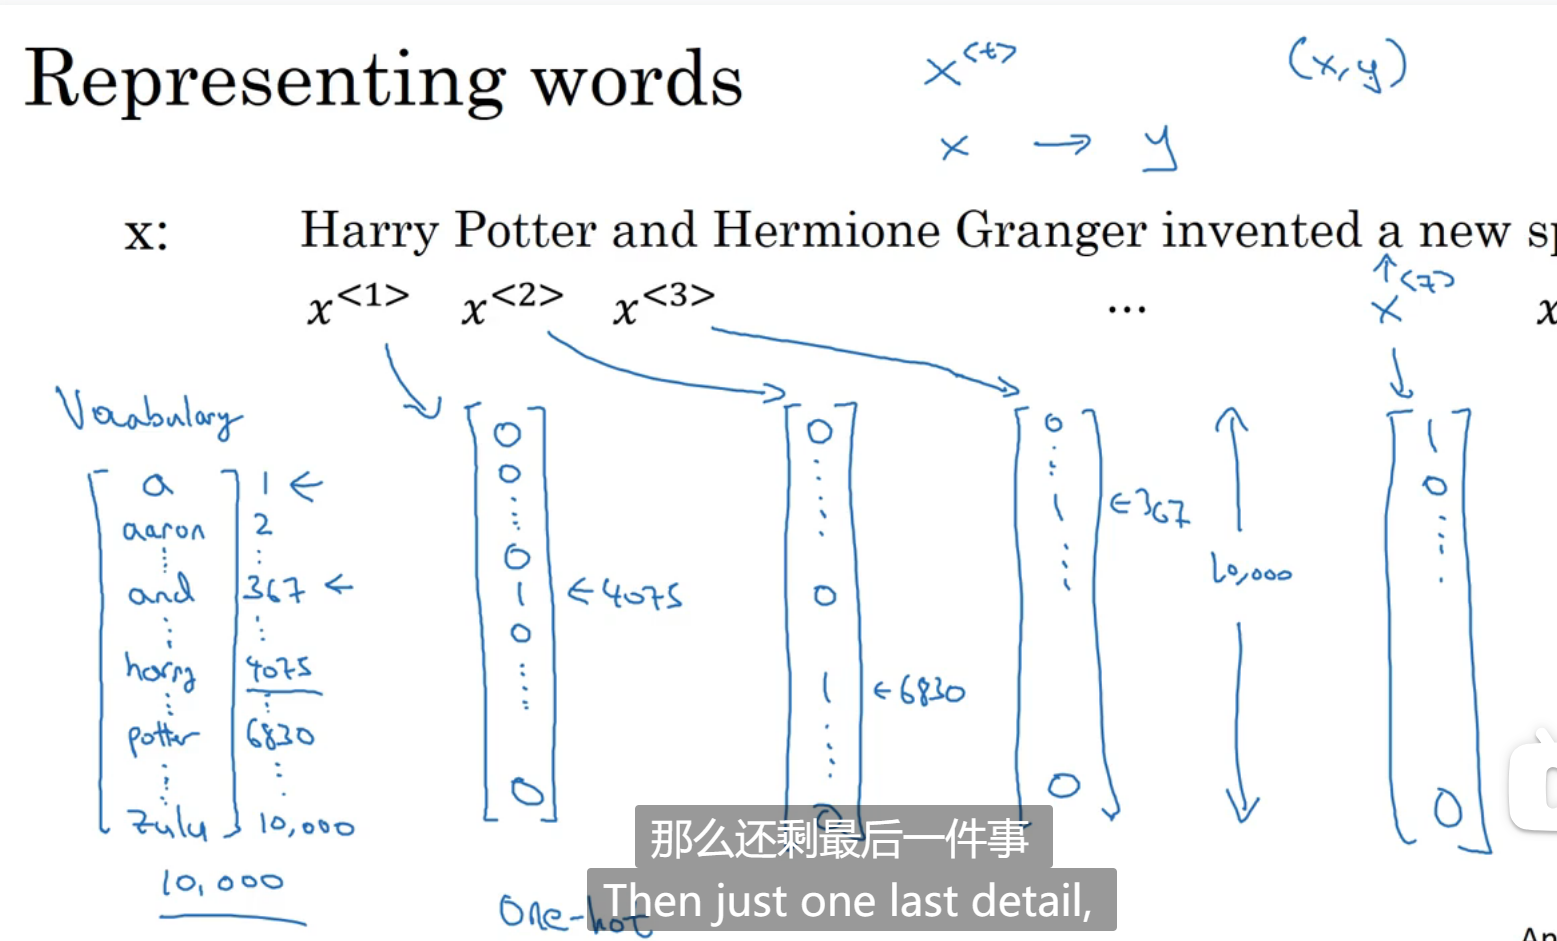 Representing words
x<t>
(x,y)
x → y
x: Harry Potter and Hermione Granger invented a new sp
x<1> x<2> x<3> ... x<7> x
Vocabulary
a 1 ←
aaron 2
and 367 ←
harry 4075
potter 6830
zulu 10,000
10,000
0
0
0
1 ←4075
0
0
0
0
1 ←6830
0
0
1 ←367
0
10,000
1
0
0
One-hot
那么还剩最后一件事
Then just one last detail,
An